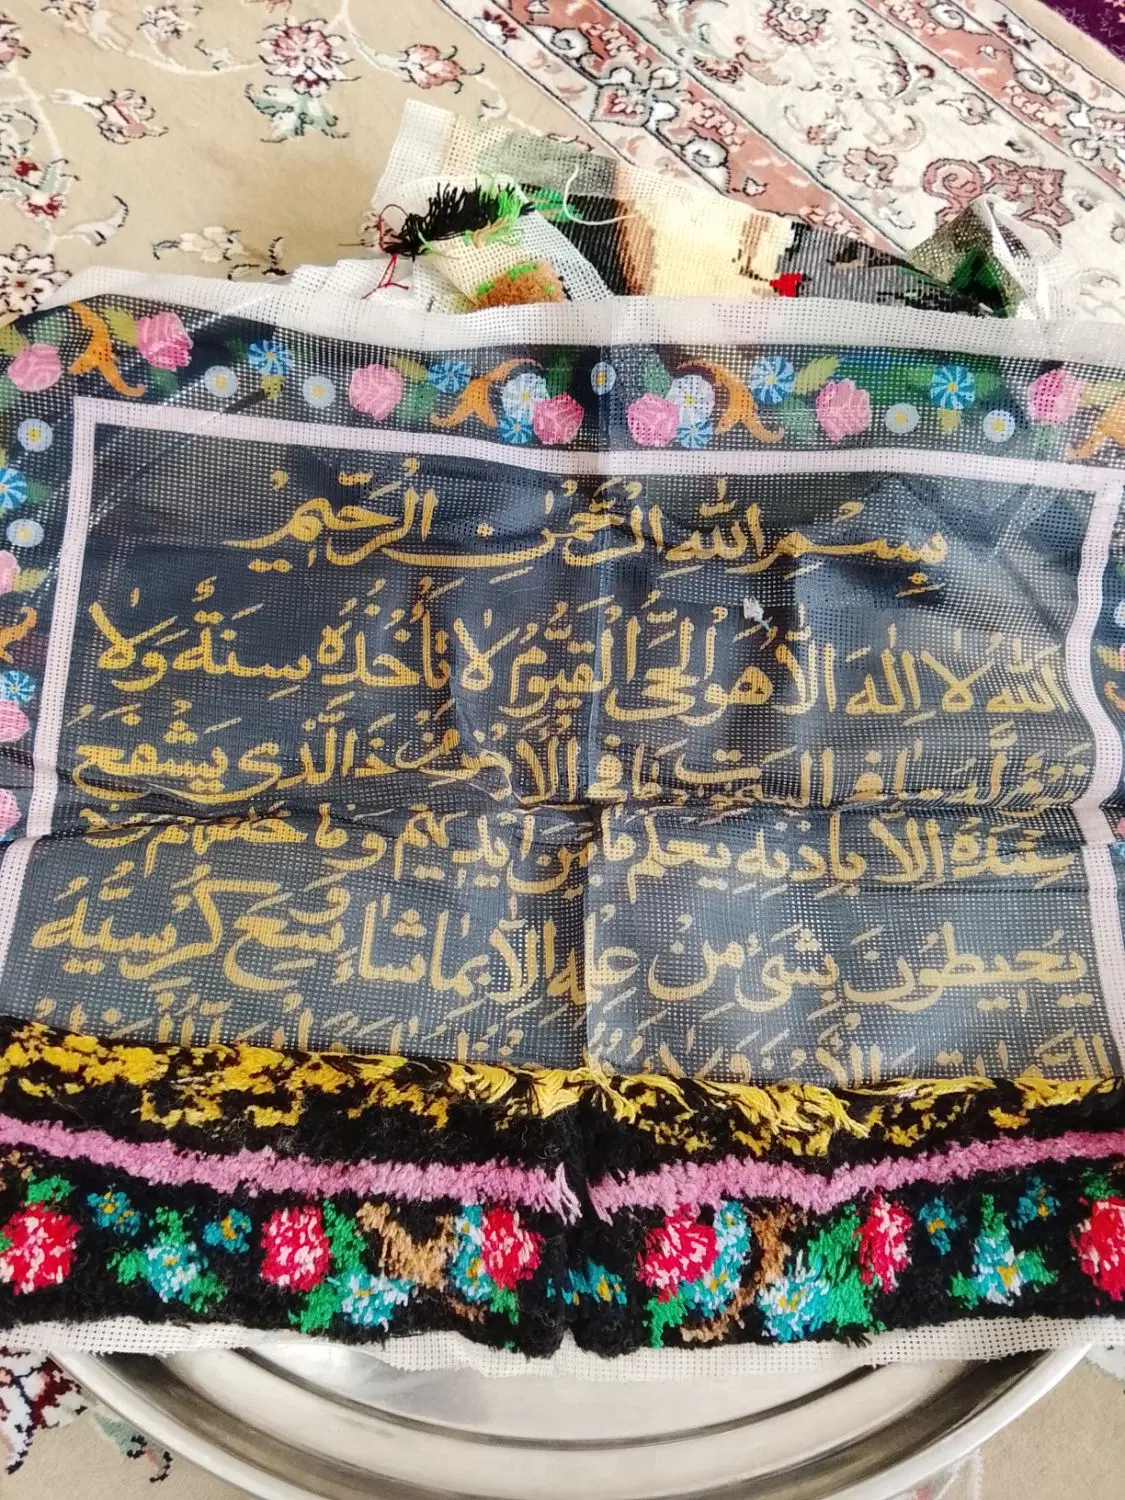 بِسْمِ اللهِ الرَّحْمٰنِ الرَّحِيْمِ
اَللّٰهُ لَا اِلٰهَ اِلَّا هُوَ الْحَيُّ الْقَيُّوْمُ لَا تَأْخُذُهٗ سِنَةٌ وَلَا
السمٰوٰت وَمَا فِى الْاَرْضِ مَنْ ذَا الَّذِى يَشْفَعُ
عِنْدَهٗ اِلَّا بِاِذْنِهٖ يَعْلَمُ مَا بَيْنَ اَيْدِيْهِمْ وَمَا خَلْفَهُمْ وَلَا
يُحِيْطُوْنَ بِشَىْءٍ مِنْ عِلْمِهٖ اِلَّا بِمَا شَاءَ وَسِعَ كُرْسِيُّهُ